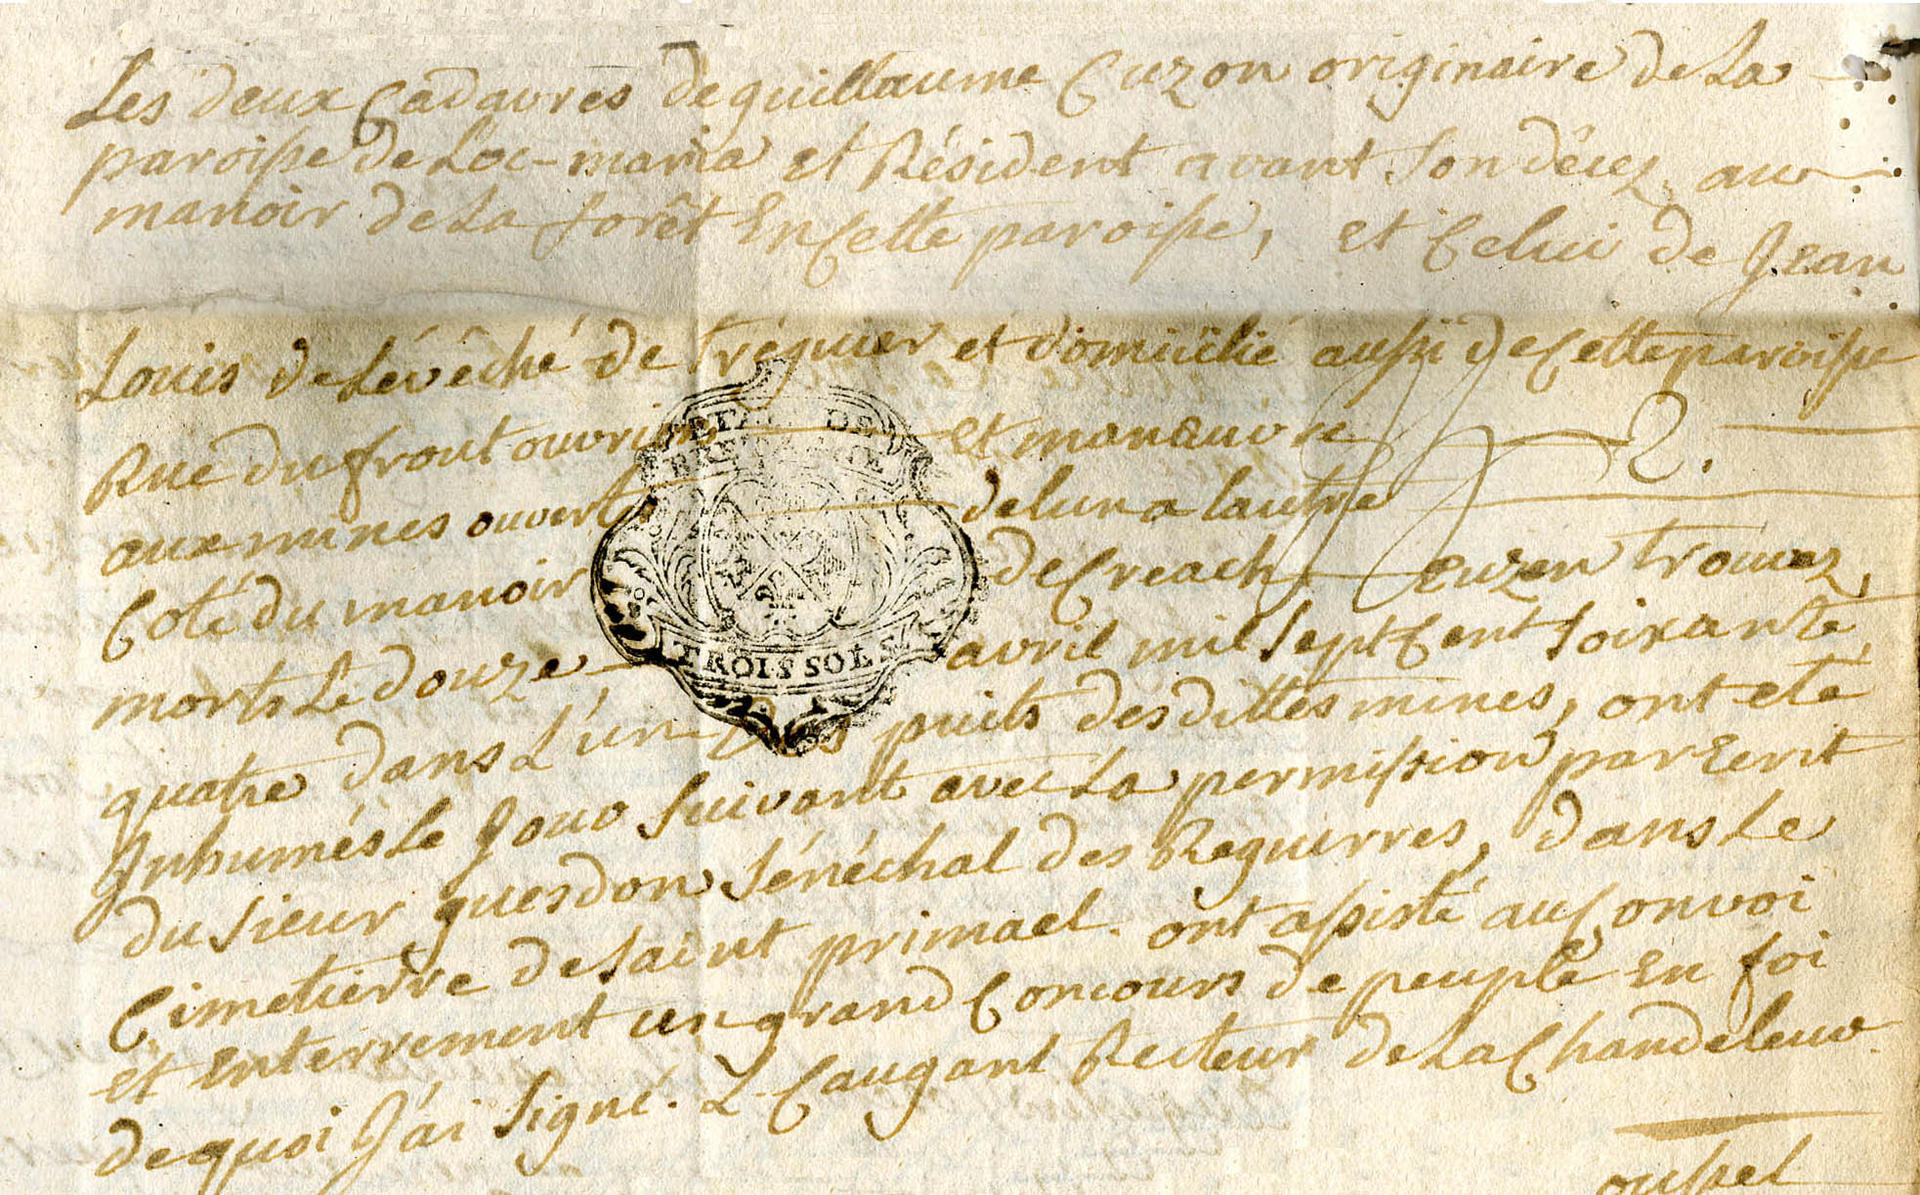 Les deux Cadavres de guillaume Cuzon originaire de La
paroisse de Loc-maria et Résident avant Son décez au
manoir de La forêt En Cette paroisse, et Celui de Jean
Louis de Lévêché de Tréguier et domicilié aussi de Cette paroisse
Rue du frout ouvriers et manœuvre
aux mines ouvert de lun a lautre
Coté du manoir de Creach Euzen trouvez
morts Le douze avril mil Sept Cent Soixante
quatre dans L'un des puits des dittes mines, ont eté
Inhumés Le Jour Suivant avec La permission par Ecrit
du Sieur guesdon Sénéchal des Reguerres, dans Le
Cimetierre de Saint primael. ont assisté au Convoi
et Enterrement un grand Concours de peuple En foi
de quoi J'ai Signé. L. Caugant Recteur de La Chandeleur
DE
TROIS SOLS